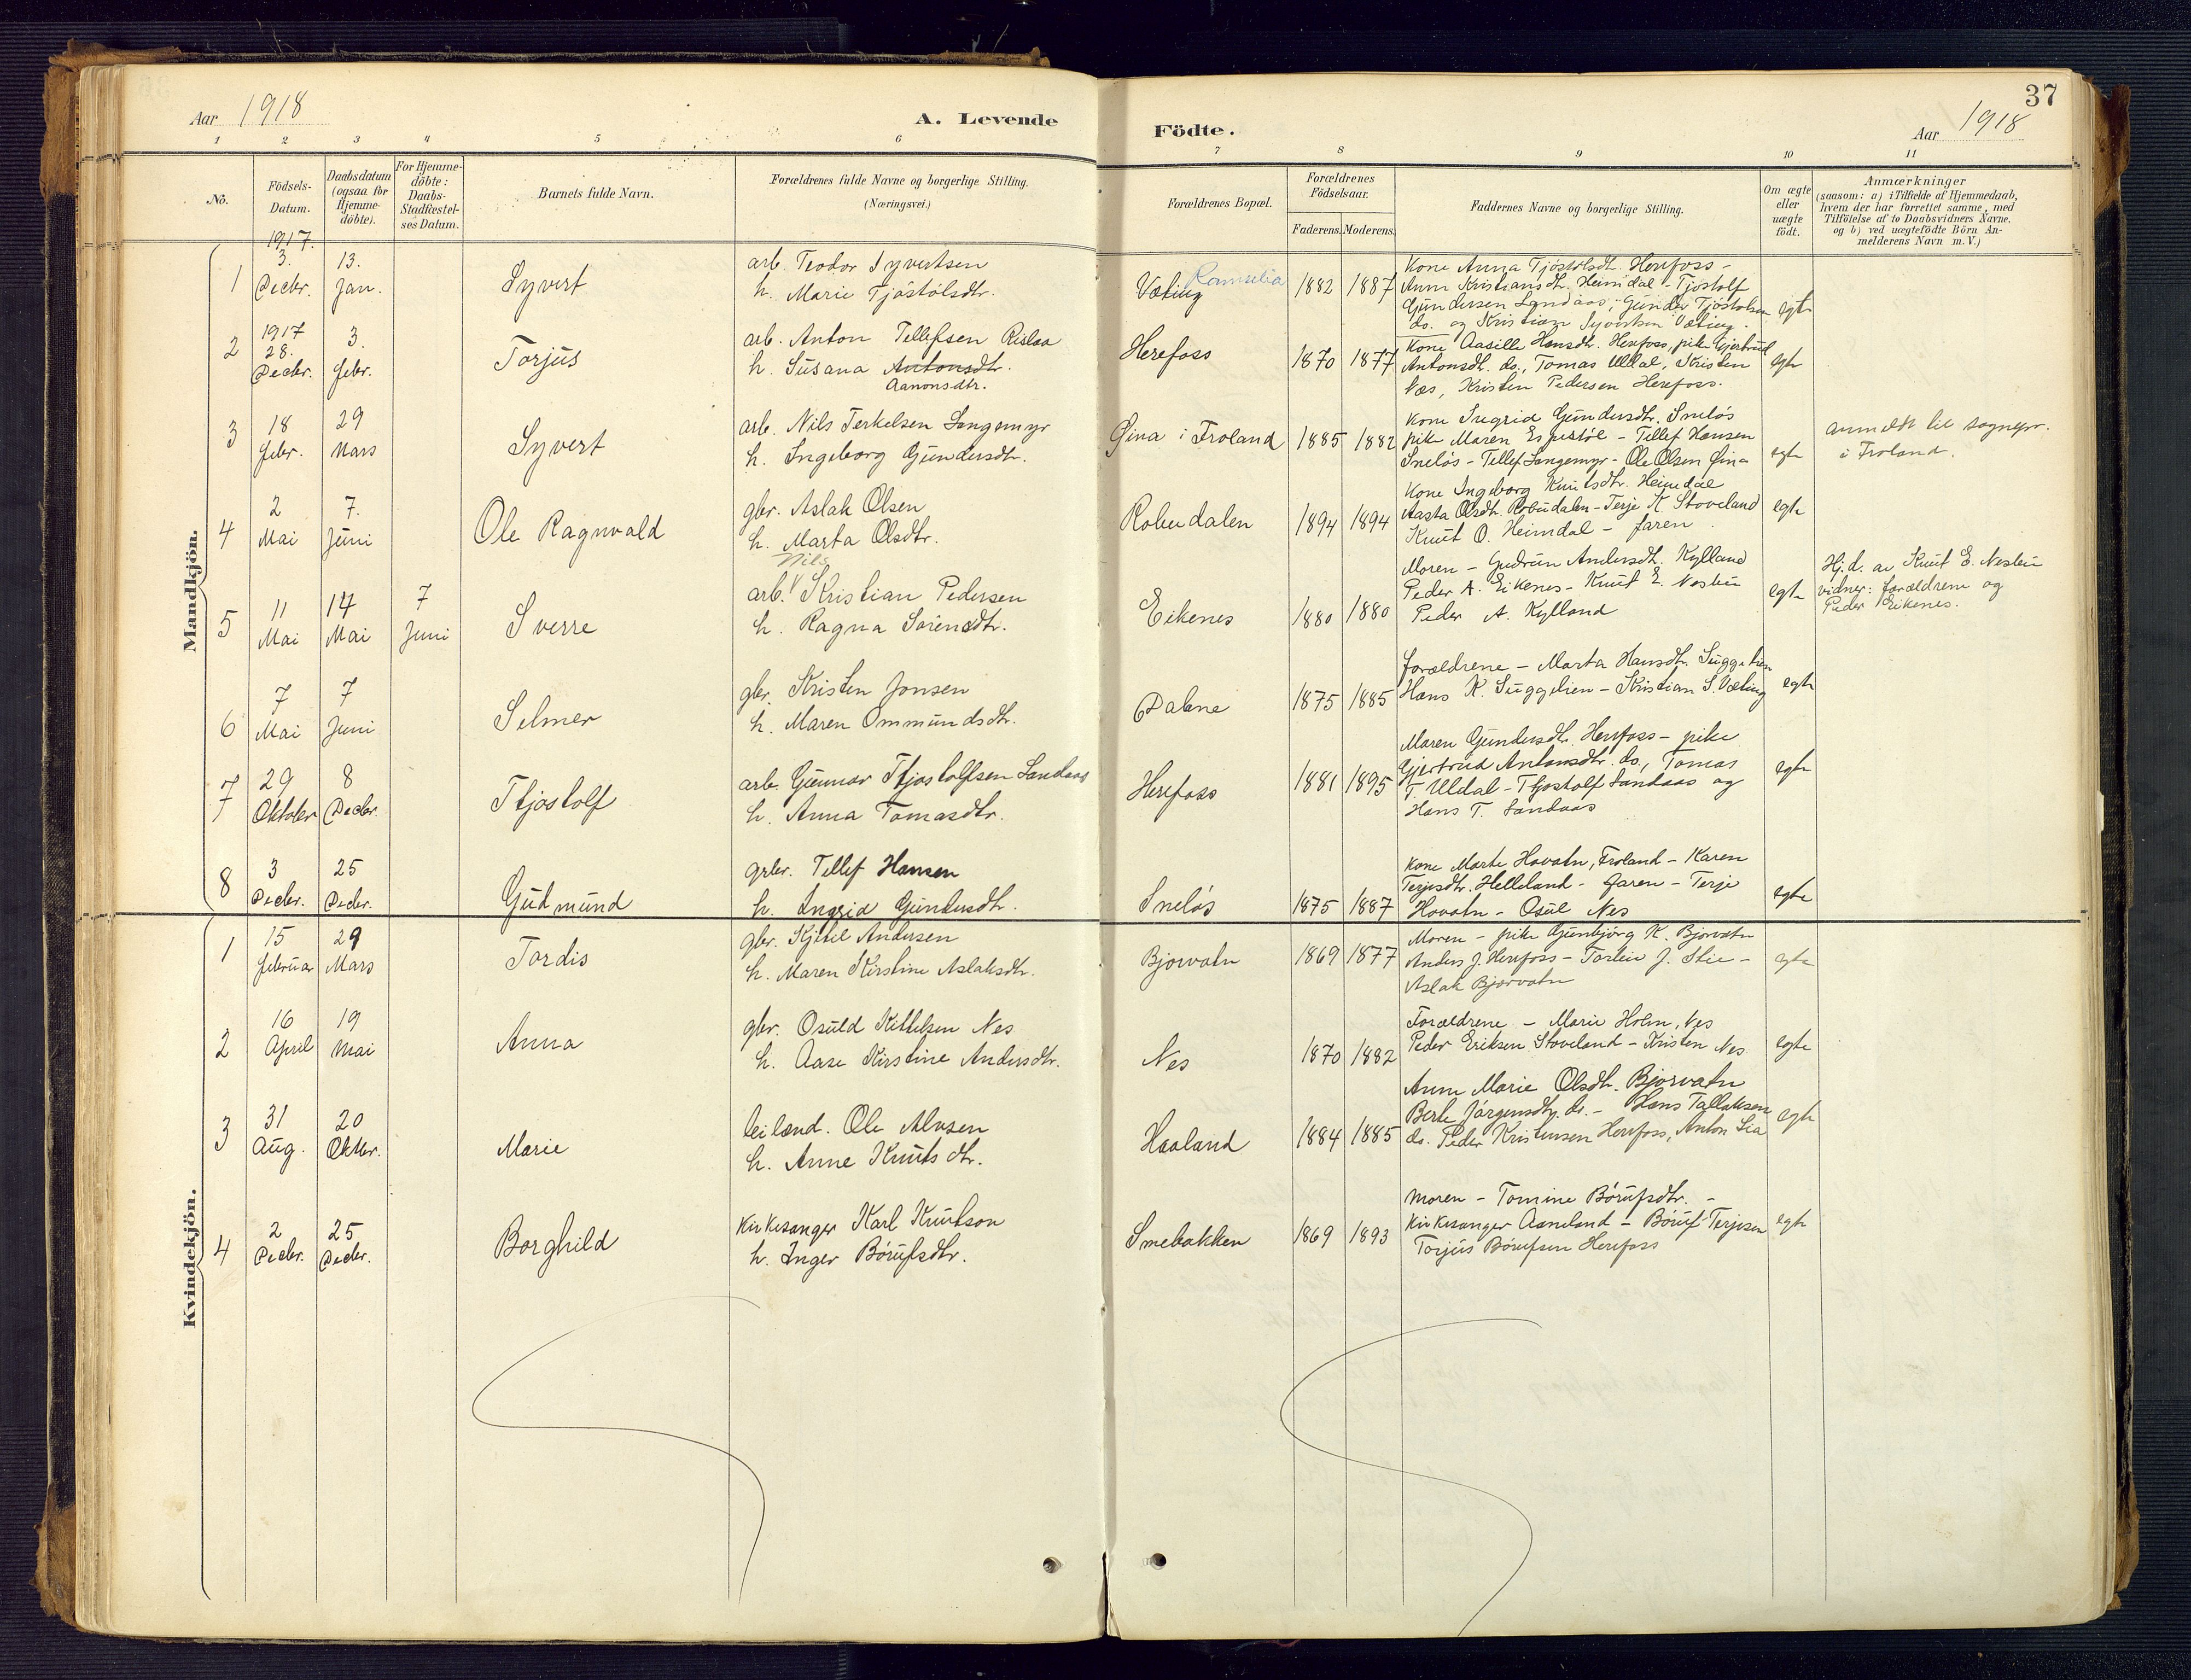 37
Aar 1918
A. Levende
Födte.
Aar 1918
1 2 3 4 5 6 7 8 9 10 11
No.
Födsels-Datum.
Daabsdatum (ogsaa for Hjemme-döbte).
For Hjemme-döbte: Daabs-Stadfæstel-ses Datum.
Barnets fulde Navn.
Forældrenes fulde Navne og borgerlige Stilling.
(Næringsvei.)
Forældrenes Bopæl.
Forældrenes Födselsaar.
Faderens. Moderens.
Faddernes Navne og borgerlige Stilling.
Om ægte eller uægte födt.
Anmærkninger
(saasom: a) i Tilfælde af Hjemmedaab,
hvem der har forrettet samme, med
Tilföielse af to Daabsvidners Navne,
og b) ved uægtefödte Börn An-
melderens Navn m. V.)
Mandkjön.
1917.
1 3. Decbr. 13. Jan. Syvert
arb. Teodor Syvertsen
h. Marie Tjöstölsdtr.
Væting 1882 1887
Kone Anna Tjöstölsdtr. Herefoss -
Anna Kristiansdtr. Heimdal - Tjöstolf
Gundersen Landaas, Gunder Tjöstolsen
do. og Kristian Syvertsen Væting.
egte
1917
2 28. Decbr. 3. Febr. Torjus
arb. Anton Tellefsen Rislaa
h. Susana Antonsdtr.
Aanonsdtr.
Herefoss 1870 1877
Kone Aasille Hansdtr. Herefoss, pike Gjertrud
Antonsdtr. do., Tomas Uldal, Kristen
Næs, Kristen Pedersen Herefoss.
egte
3 18 Febr. 29 Mars Syvert
arb. Nils Terkelsen Langemyr
h. Ingeborg Gundersdtr.
Øina i Froland 1885 1882
Kone Ingrid Gundersdtr. Sneløs
pike Maren Espestøl - Tellef Hansen
Sneløs - Tellef Langemyr - Ole Olsen Øina
egte
anmeldt til sognepr.
i Froland.
4 2 Mai 7. Juni Ole Ragnvald
gbr. Aslak Olsen
h. Marta Olsdtr.
Robudalen 1894 1894
Kone Ingeborg Knutsdtr. Heimdal
Aasta Olsdtr. Robudalen - Terje K Stoveland
Knut O. Heimdal - faren
egte
5 11 Mai 14 Mai 7 Juni Sverre
Nils
arb. Kristian Pedersen
h. Ragna Sörensdtr.
Eikenes 1880 1880
Moren - Gudrun Andersdtr. Kylland
Peder A. Eikenes - Knut E. Neslein
Peder A. Kylland
egte
Hj.d. av Knut E. Neslein
vidner: forældrene og
Peder Eikenes.
6 7 Mai 7 Juni Selmer
gbr. Kristen Jonsen
h. Maren Ommundsdtr.
Dalene 1875 1885
forældrene - Marta Hansdtr. Suggelien
Hans K. Suggelien - Kristian S. Væting
egte
7 29 Oktober 8 Decbr. Tjostolf
arb. Gunnar Tjostolfsen Landaas
h. Anna Tomasdtr.
Herefoss 1881 1895
Maren Gundersdtr. Herefoss - pike
Gjertrud Antonsdtr. do., Tomas
T. Uldal - Tjostolf Landaas og
Hans T. Landaas
egte
8 3 Decbr. 25 Decbr. Gudmund
grbr. Tellef Hansen
h. Ingrid Gundersdtr.
Sneløs 1875 1887
Kone Marte Hovatn, Froland - Karen
Terjesdtr. Helleland - faren - Terje
Hovatn - Osul Nes
egte
Kvindekjön.
1 15 februar 29 Mars Tordis
gbr. Kjetil Andersen
h. Maren Kirstine Aslaksdtr.
Bjorvatn 1869 1877
Moren - pike Gunbjörg K. Bjorvatn
Anders J. Herefoss - Torleiv J. Stie -
Aslak Bjorvatn
egte
2 16 April 19 Mai Anna
gbr. Osuld Kittelsen Nes
h. Aase Kirstine Andersdtr.
Nes 1870 1882
Forældrene - Marie Holm, Nes
Peder Eriksen Stoveland - Kristen Nes
egte
3 31 Aug. 20 Oktbr. Marie
leilænd. Ole Alvsen
h. Anne Knutsdtr.
Haaland 1884 1885
Anne Marie Olsdtr. Bjorvatn
Berte Jörgensdtr. do. - Hans Tallaksen
do. Peder Kristensen Herefoss, Anton Lia
egte
4 2 Decbr. 25 Decbr. Borghild
Kirkesanger Karl Knutson
h. Inger Börufsdtr.
Smebakken 1869 1893
Moren - Tomine Börufsdtr. -
Kirkesanger Aaneland - Böruf Terjesen
Torjus Börufsen Herefoss
egte